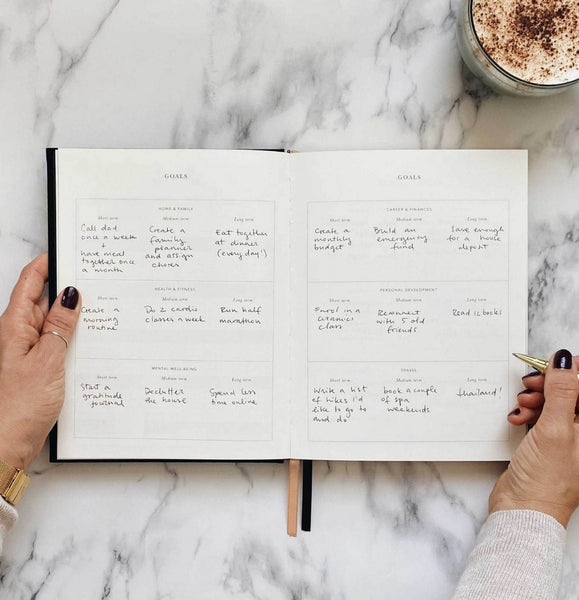 GOALS
HOME & FAMILY
Short term
Call dad
once a week
+
have meal
together once
a month
Medium term
Create a
family
planner
and assign
chores
Long term
Eat together
at dinner
(every day!)
HEALTH & FITNESS
Short term
Create a
morning
routine
Medium term
Do 2 cardio
classes a week
Long term
Run half
marathon
MENTAL WELL-BEING
Short term
Start a
gratitude
journal
Medium term
Declutter
the house
Long term
Spend less
time online
GOALS
CAREER & FINANCES
Short term
Create a
monthly
budget
Medium term
Build an
emergency
fund
Long term
Save enough
for a house
deposit
PERSONAL DEVELOPMENT
Short term
Enrol in a
ceramics
class
Medium term
Reconnect
with 5 old
friends
Long term
Read 12 books
TRAVEL
Short term
Write a list
of hikes I'd
like to go to
and do
Medium term
book a couple
of spa
weekends
Long term
Thailand!